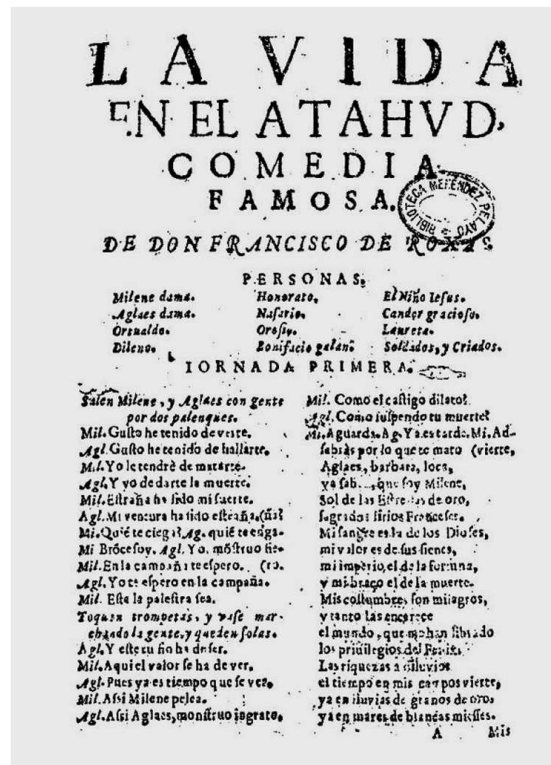 LA VIDA
EN EL ATAHVD,
COMEDIA
FAMOSA.
BIBLIOTECA MENÉNDEZ PELAYO
DE DON FRANCISCO DE ROXAS
PERSONAS.
Milene dama. Honorato. El Niño Iesus.
Aglaes dama. Nasario. Candor gracioso.
Orsualdo. Orosio. Laureta.
Dileno. Bonifacio galan. Soldados, y Criados.
IORNADA PRIMERA.
Salen Milene, y Aglaes con gente
por dos palenques.
Mil. Gusto he tenido de verte.
Agl. Gusto he tenido de hallarte.
Mil. Yo le tendrè de matarte.
Agl. Y yo de darte la muerte.
Mil. Estraña ha sido mi suerte.
Agl. Mi ventura ha sido estraña. (ña?
Mi. Quiẽ te ciega? Ag. quiẽ te enga-
Mi Brõce soy. Agl. Yo, mõstruo fie-
Mil. En la campaña te espero. (ro.
Agl. Yo te espero en la campaña.
Mil. Esta la palestra sea.
Toquen trompetas, y vase mar-
chando la gente, y queden solas.
Agl. Y este tu fin ha de ser.
Mil. Aqui el valor se ha de ver.
Agl. Pues ya es tiempo que se vea.
Mil. Assi Milene pelea.
Agl. Assi Aglaes, monstruo ingrato,
Mil. Como el castigo dilato?
Agl. Como suspendo tu muerte?
Mi. Aguarda. Ag. Ya es tarde. Mi. Ad-
sabràs por lo que te mato (vierte,
Aglaes, barbara, loca,
ya sab que soy Milene,
Sol de las Estrellas de oro,
sagrados lirios Franceses.
Mi sangre es la de los Dioses,
mi valor es de sus sienes,
mi imperio, el de la fortuna,
y mi braço el de la muerte.
Mis costumbres son milagros,
y tanto las encarece
el mundo, que me han librado
los priuilegios del
Las riquezas a diluuios
el tiempo en mis campos vierte,
ya en lluvias de granos de oro,
ya en mares de blancas miesses.
A Mis